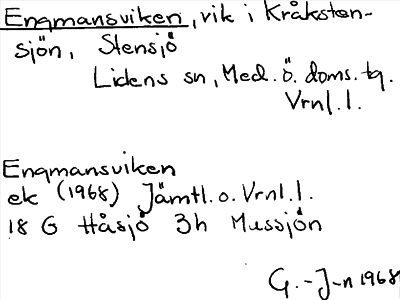 Engmansviken, vik i Kråksten-
sjön, Stensjö
Lidens sn, Med. ö. doms. tg.
Vrnl. l.
Engmansviken
ek (1968) Jämtl. o. Vrnl. l.
18 G Håsjö 3h Mussjön
G. -J-n 1968